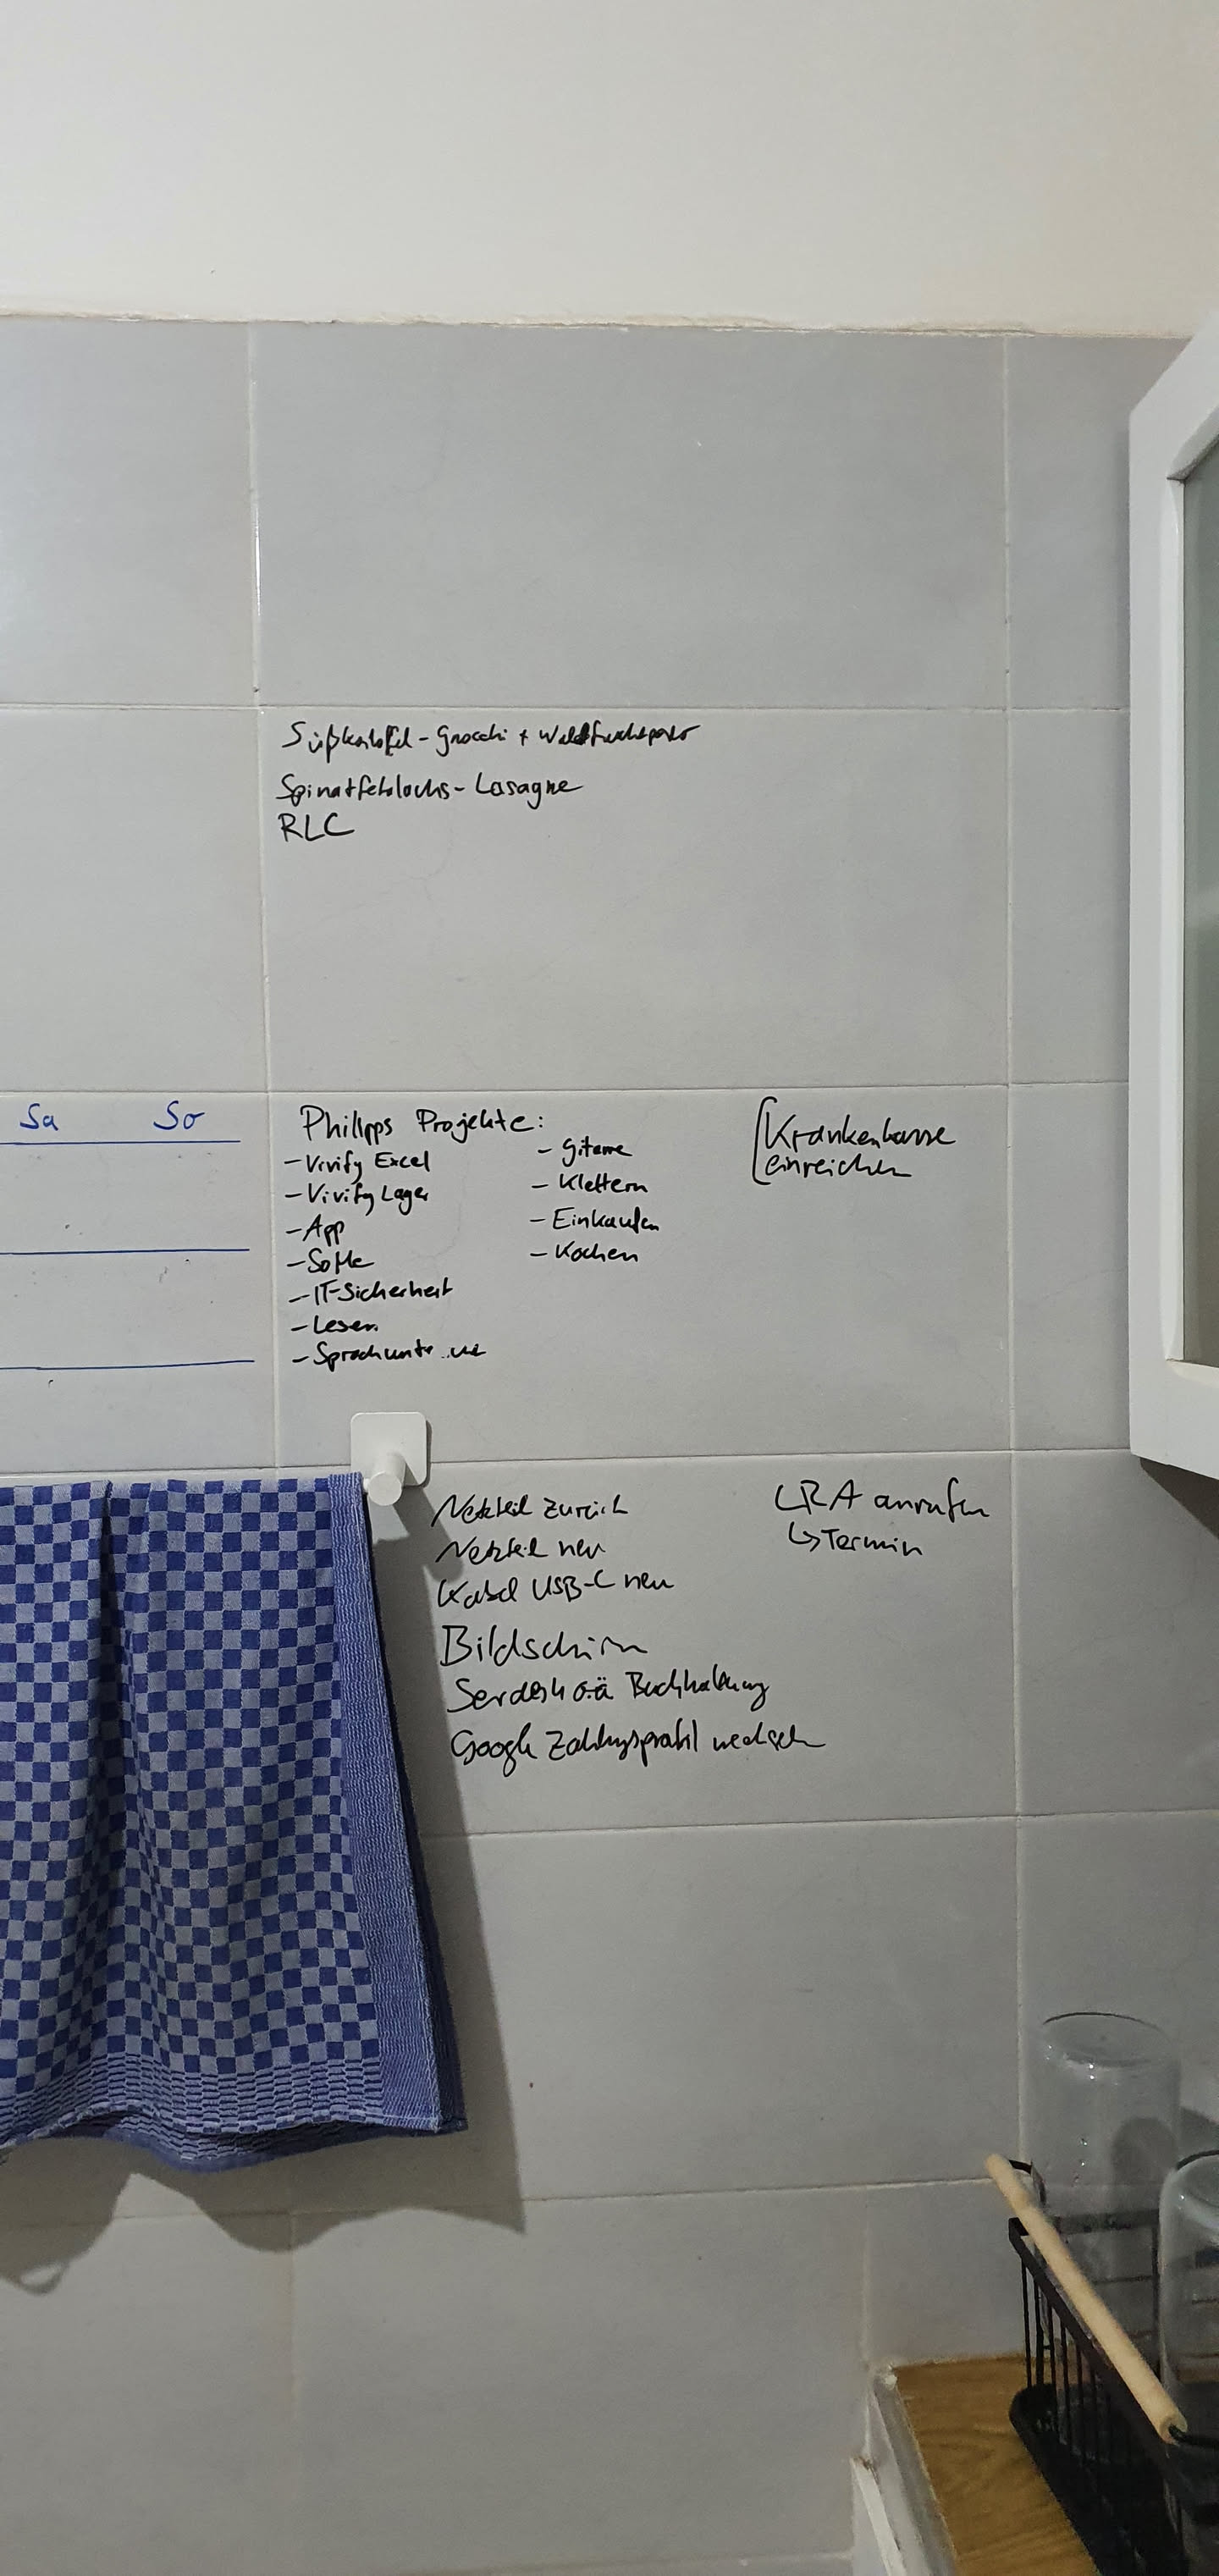 Süßkartoffel-Gnocchi + Waldfruchtpesto
Spinatfetalachs-Lasagne
RLC
Sa So
Philipps Projekte:
- Vivify Excel
- Vivify Lager
- App
- SoMe
- IT-Sicherheit
- Lesen
- Gitarre
- Klettern
- Einkaufen
- Kochen
Krankenkasse
einreichen
Netzteil zurück
Netzteil neu
Kabel USB-C neu
Bildschirm
o.ä Buchhaltung
Google Zahlungsprofil wechseln
LRA anrufen
↳ Termin